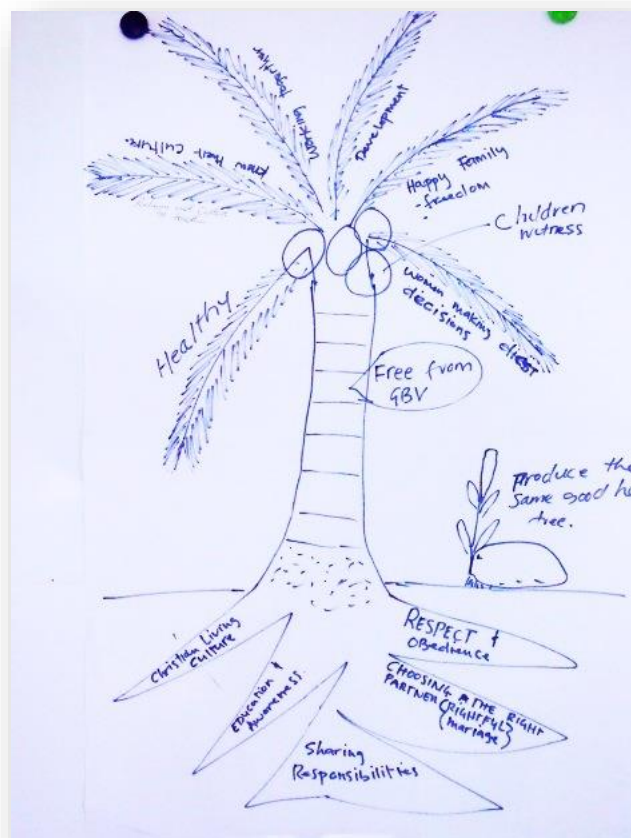 Working Together
Development
Know their Culture
Happy Family
- freedom
Children
witness
Healthy
women making
decisions
Free from
GBV
Produce the
same good
tree.
Christian Living
Culture
EDUCATION &
Awareness
RESPECT &
OBedience
CHOOSING THE RIGHT
PARTNER (RIGHTFUL)
(mariage)
Sharing
Responsibilities